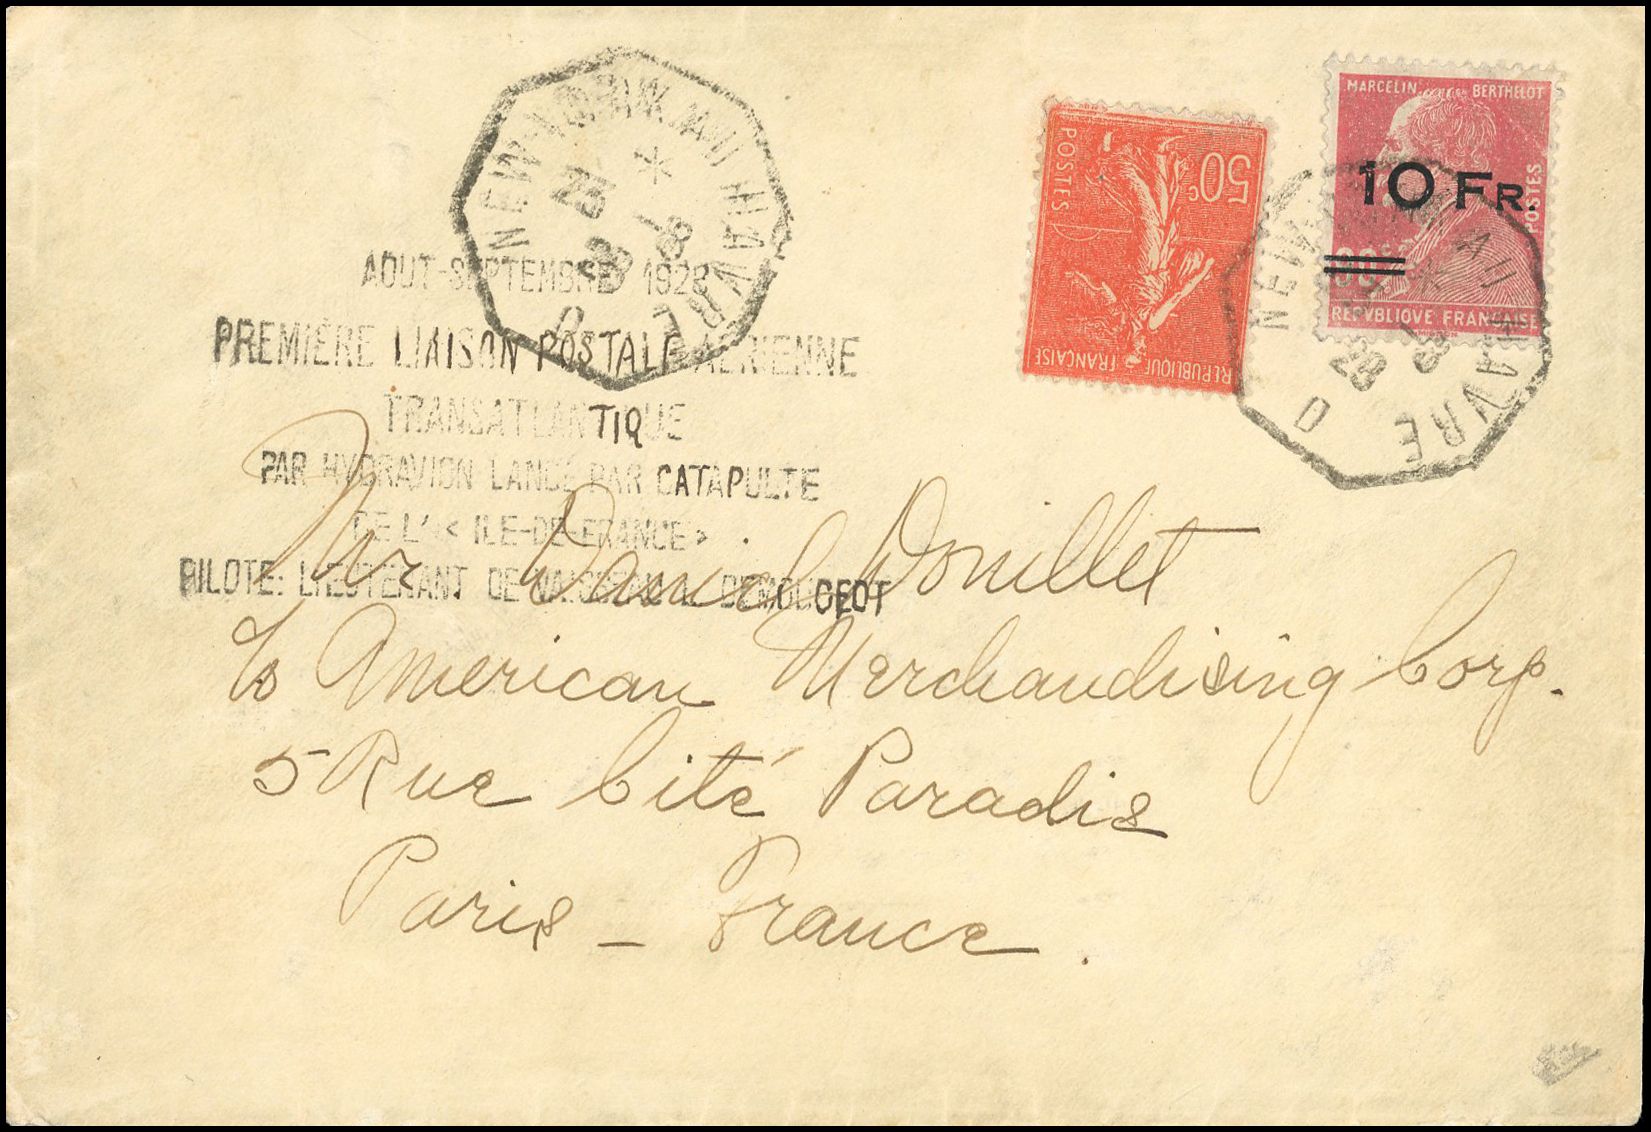 NEW-YORK AU HAVRE D
*
23
8
28
MARCELIN BERTHELOT
10 FR.
90c
POSTES
REPVBLIQVE FRANÇAISE
50c
POSTES
REPUBLIQUE FRANÇAISE
NEW AU HAVRE D
28
AOUT-SEPTEMBRE 1928
PREMIÈRE LIAISON POSTALE AERIENNE
TRANSATLANTIQUE
PAR HYDRAVION LANCÉ PAR CATAPULTE
DE L' « ILE-DE-FRANCE »
PILOTE: LIEUTENANT DE VAISSEAU L. DEMOUGEOT
Mr Daniel Douillet
c/o American Merchandising Corp.
5 Rue Cité Paradis
Paris - France.